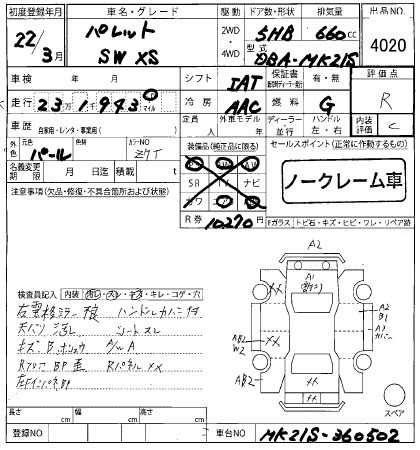 初度登録年月 車名・グレード 駆動 ドア数・形状 排気量 出品NO.
22/3月 パレット SW XS 2WD・4WD 5HB 660cc 4020
型式 DBA-MK21S
車検 年 月 シフト IAT 保証書 有・無 評価点
走行 23万1943 0 マイル 冷房 AAC 燃料 G R
車歴 自家用・レンタ・事業用( ) 定員 人 外車モデル 年 ディーラー・並行 ハンドル 左・右 内装評価 C
外色 元色 パール 色替 カラーNO ZYT 装備品(純正品に限る) セールスポイント(正常に作動するもの)
名義変更期限 月 日迄 積載 t SR TV ナビ
注意事項(欠品・修復・不具合箇所および状態) カワ ノークレーム車
R券 10270円
Fガラス トビ石・キズ・ヒビ・ワレ・リペア跡
検査員記入 内装 ヨゴレ・スレ・キズ・キレ・コゲ・穴
右電格ミラー ハンドルカバー付
シートスレ
A/W A
Rパネル XX
A2
A1
XX
A2
B1
A3
カバー
XX
AB2
W2
AB2
XX
スペア
長さ cm 幅 cm 高さ cm
登録NO 車台NO MK21S-360502